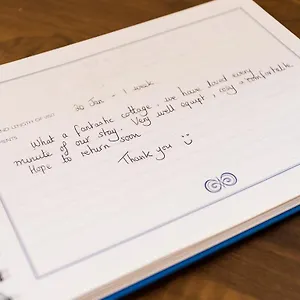 30 Jan - 1 week
ND LENGTH OF VISIT
MENTS
What a fantastic cottage. we have loved every
minute of our stay. Very well equipt, cosy + comfortable.
Hope to return soon
Thank you